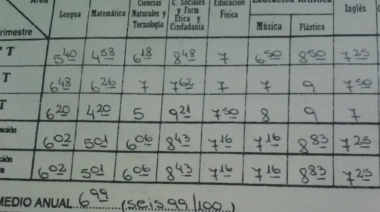 Area Lengua Matemática Ciencias Naturales y Tecnología C. Sociales y Form Etica y Ciudadanía Educación Física Música Plástica Inglés
Trimestre
T 5,40 4,58 6,18 8,48 7 6,50 8,50 7,25
T 6,48 6,26 7 7,62 7 7 9 7,50
T 6,20 4,20 5 9,21 7,50 8 9 7
6,02 5,01 6,06 8,43 7,16 7,16 8,83 7,25
6,02 5,01 6,06 8,43 7,16 7,16 8,83 7,25
MEDIO ANUAL 6,99 (seis 99/100)